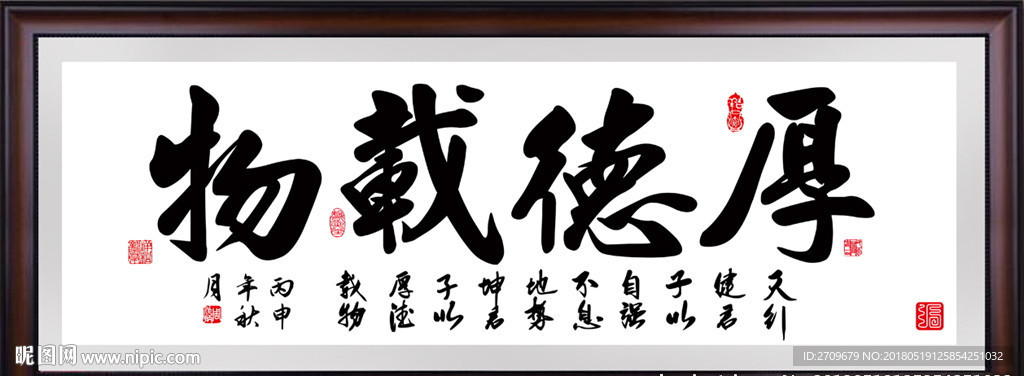 厚德載物
天行
健君
子以
自强
不息
地势
坤君
子以
厚德
载物
丙申
年秋
月
昵图网 www.nipic.com
ID:2709679 NO:20180519125854251032